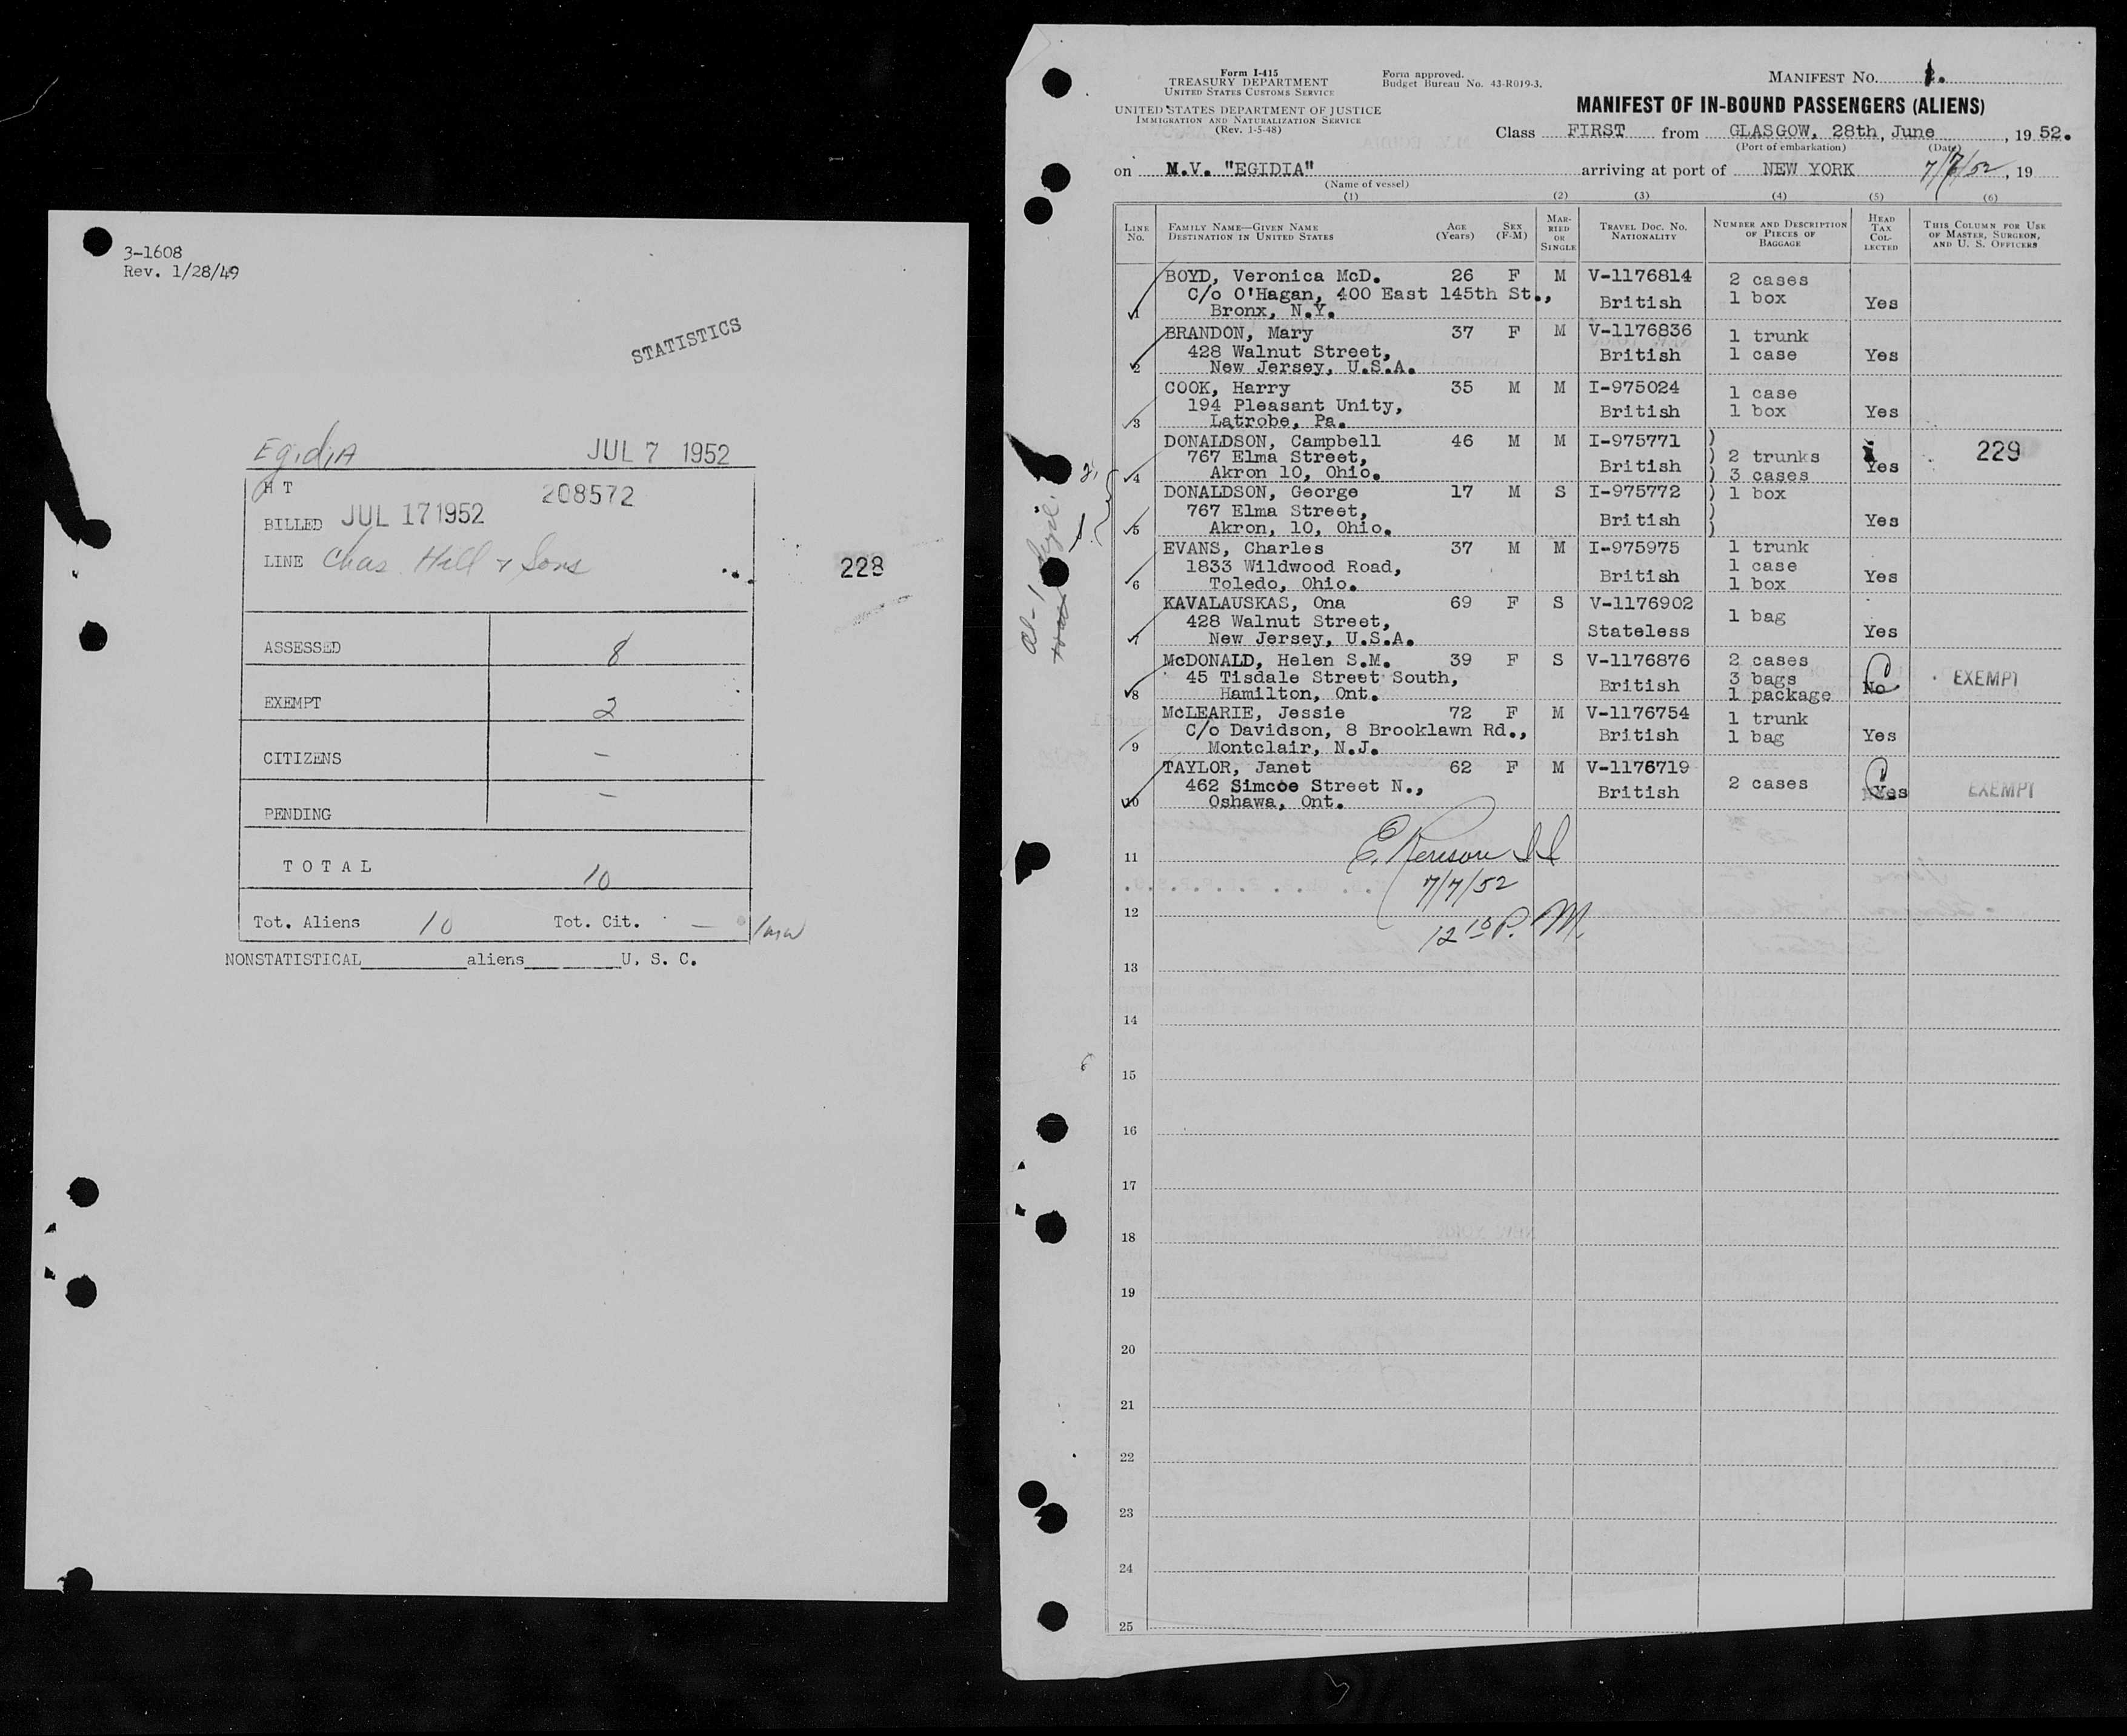 3-1608
Rev. 1/28/49
STATISTICS
Egidia JUL 7 1952
H T 208572
BILLED JUL 17 1952
LINE Chas. Hill & Sons
228
ASSESSED 8
EXEMPT 2
CITIZENS —
PENDING —
TOTAL 10
Tot. Aliens 10 Tot. Cit. —
NONSTATISTICAL__________aliens_________U. S. C.
Form I-415
TREASURY DEPARTMENT
UNITED STATES CUSTOMS SERVICE
UNITED STATES DEPARTMENT OF JUSTICE
IMMIGRATION AND NATURALIZATION SERVICE
(Rev. 1-5-48)
Form approved.
Budget Bureau No. 43-R019-3.
MANIFEST No. 1.
MANIFEST OF IN-BOUND PASSENGERS (ALIENS)
Class FIRST from GLASGOW, 28th June, 1952.
(Port of embarkation) (Date)
on M.V. "EGIDIA" arriving at port of NEW YORK 7/7/52, 19
(Name of vessel)
(1) (2) (3) (4) (5) (6)
LINE No. FAMILY NAME—GIVEN NAME DESTINATION IN UNITED STATES AGE (Years) SEX (F-M) MARRIED OR SINGLE TRAVEL DOC. NO. NATIONALITY NUMBER AND DESCRIPTION OF PIECES OF BAGGAGE HEAD TAX COLLECTED THIS COLUMN FOR USE OF MASTER, SURGEON, AND U. S. OFFICERS
BOYD, Veronica McD. 26 F M V-1176814 2 cases
C/o O'Hagan, 400 East 145th St., British 1 box Yes
1 Bronx, N.Y.
BRANDON, Mary 37 F M V-1176836 1 trunk
428 Walnut Street, British 1 case Yes
2 New Jersey, U.S.A.
COOK, Harry 35 M M I-975024 1 case
194 Pleasant Unity, British 1 box Yes
3 Latrobe, Pa.
DONALDSON, Campbell 46 M M I-975771 ) 229
767 Elma Street, British ) 2 trunks Yes
4 Akron 10, Ohio. ) 3 cases
DONALDSON, George 17 M S I-975772 ) 1 box
767 Elma Street, British ) Yes
5 Akron, 10, Ohio. )
EVANS, Charles 37 M M I-975975 1 trunk
1833 Wildwood Road, British 1 case Yes
6 Toledo, Ohio. 1 box
KAVALAUSKAS, Ona 69 F S V-1176902 1 bag
428 Walnut Street, Stateless Yes
7 New Jersey, U.S.A.
McDONALD, Helen S.M. 39 F S V-1176876 2 cases
45 Tisdale Street South, British 3 bags C No EXEMPT
8 Hamilton, Ont. 1 package
McLEARIE, Jessie 72 F M V-1176754 1 trunk
C/o Davidson, 8 Brooklawn Rd., British 1 bag Yes
9 Montclair, N.J.
TAYLOR, Janet 62 F M V-1176719
462 Simcoe Street N., British 2 cases C Yes EXEMPT
10 Oshawa, Ont.
11
7/7/52
12
12 10 P. M.
13
14
15
16
17
18
19
20
21
22
23
24
25